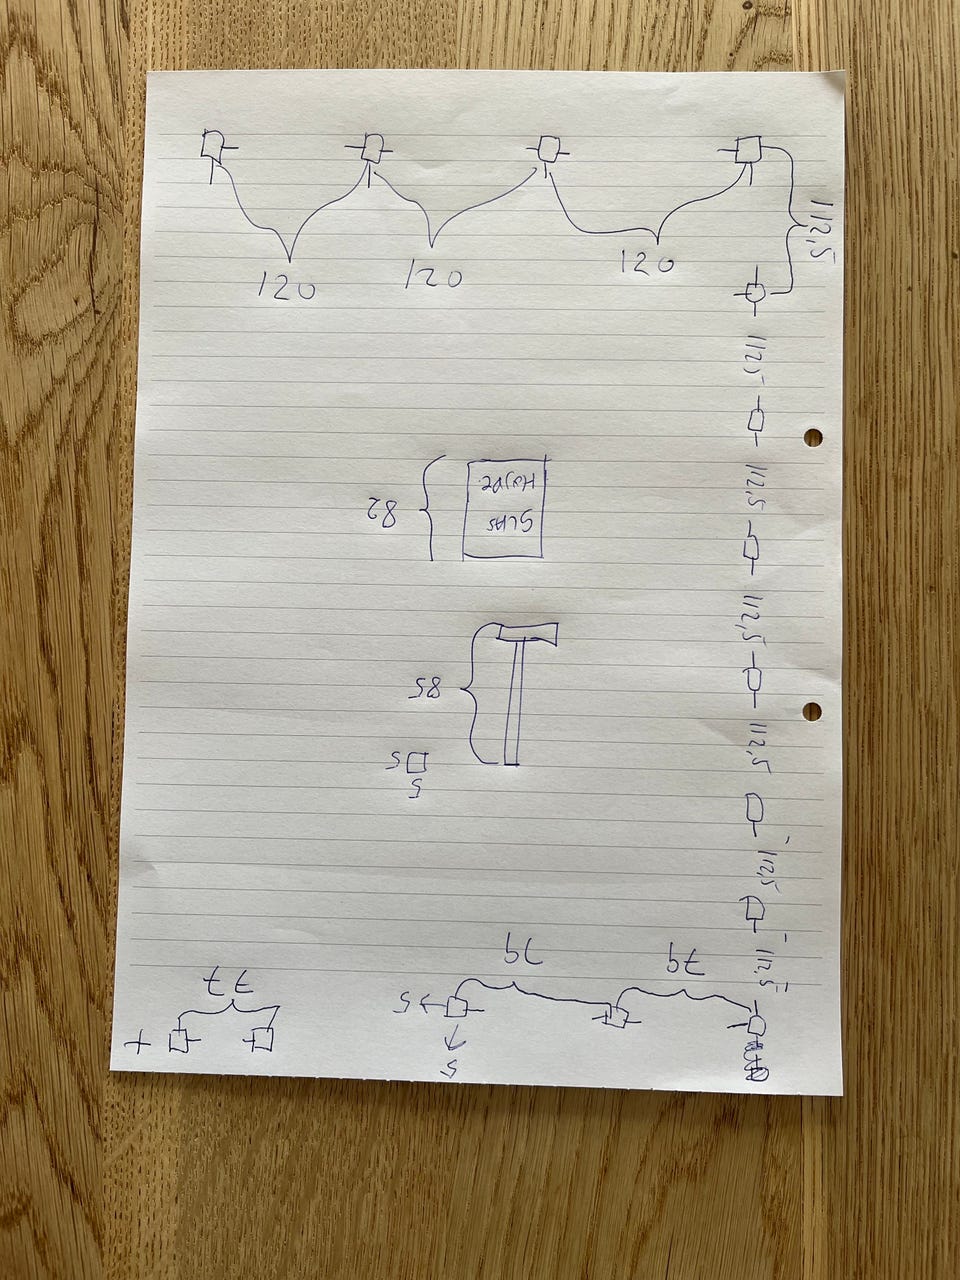 112,5
120
120
120
112,5
112,5
112,5
112,5
112,5
112,5
GLAS
HØJDE
82
85
5
5
79
79
77
5
5